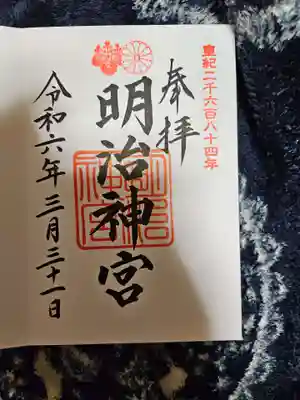 皇紀二千六百八十四年
奉拝
明治神宮
明治神宮
令和六年三月三十一日